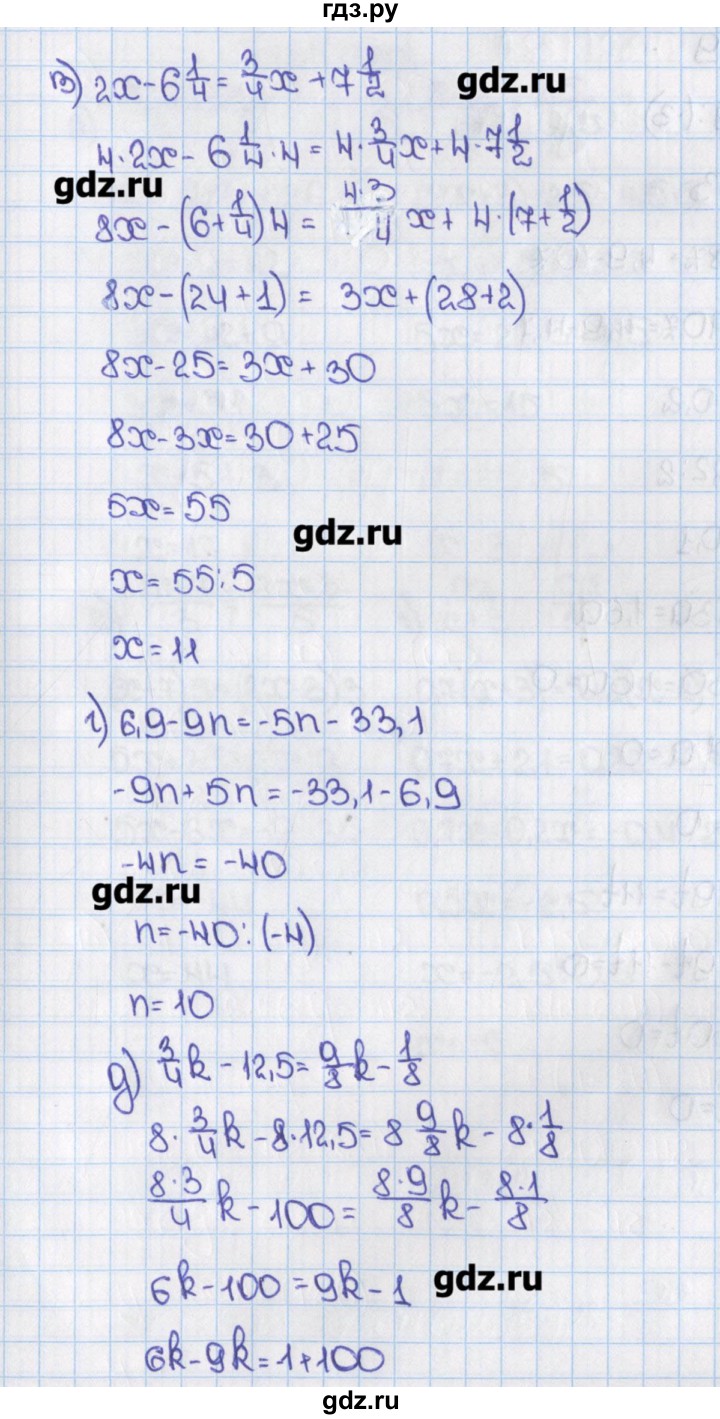 гдз.ру
в) 2x - 6 1/4 = 3/4 x + 7 1/2
gdz.ru
4·2x - 6 1/4 · 4 = 4 · 3/4 x + 4 · 7 1/2
gdz.ru
8x - (6 + 1/4) 4 = 4·3/4 x + 4 · (7 + 1/2)
8x - (24 + 1) = 3x + (28 + 2)
8x - 25 = 3x + 30
8x - 3x = 30 + 25
5x = 55
gdz.ru
x = 55 : 5
x = 11
г) 6,9 - 9n = -5n - 33,1
-9n + 5n = -33,1 - 6,9
-4n = -40
gdz.ru
n = -40 : (-4)
n = 10
д) 3/4 k - 12,5 = 9/8 k - 1/8
8 · 3/4 k - 8 · 12,5 = 8 9/8 k - 8 · 1/8
8·3/4 k - 100 = 8·9/8 k - 8·1/8
6k - 100 = 9k - 1
gdz.ru
6k - 9k = 1 + 100
gdz.ru